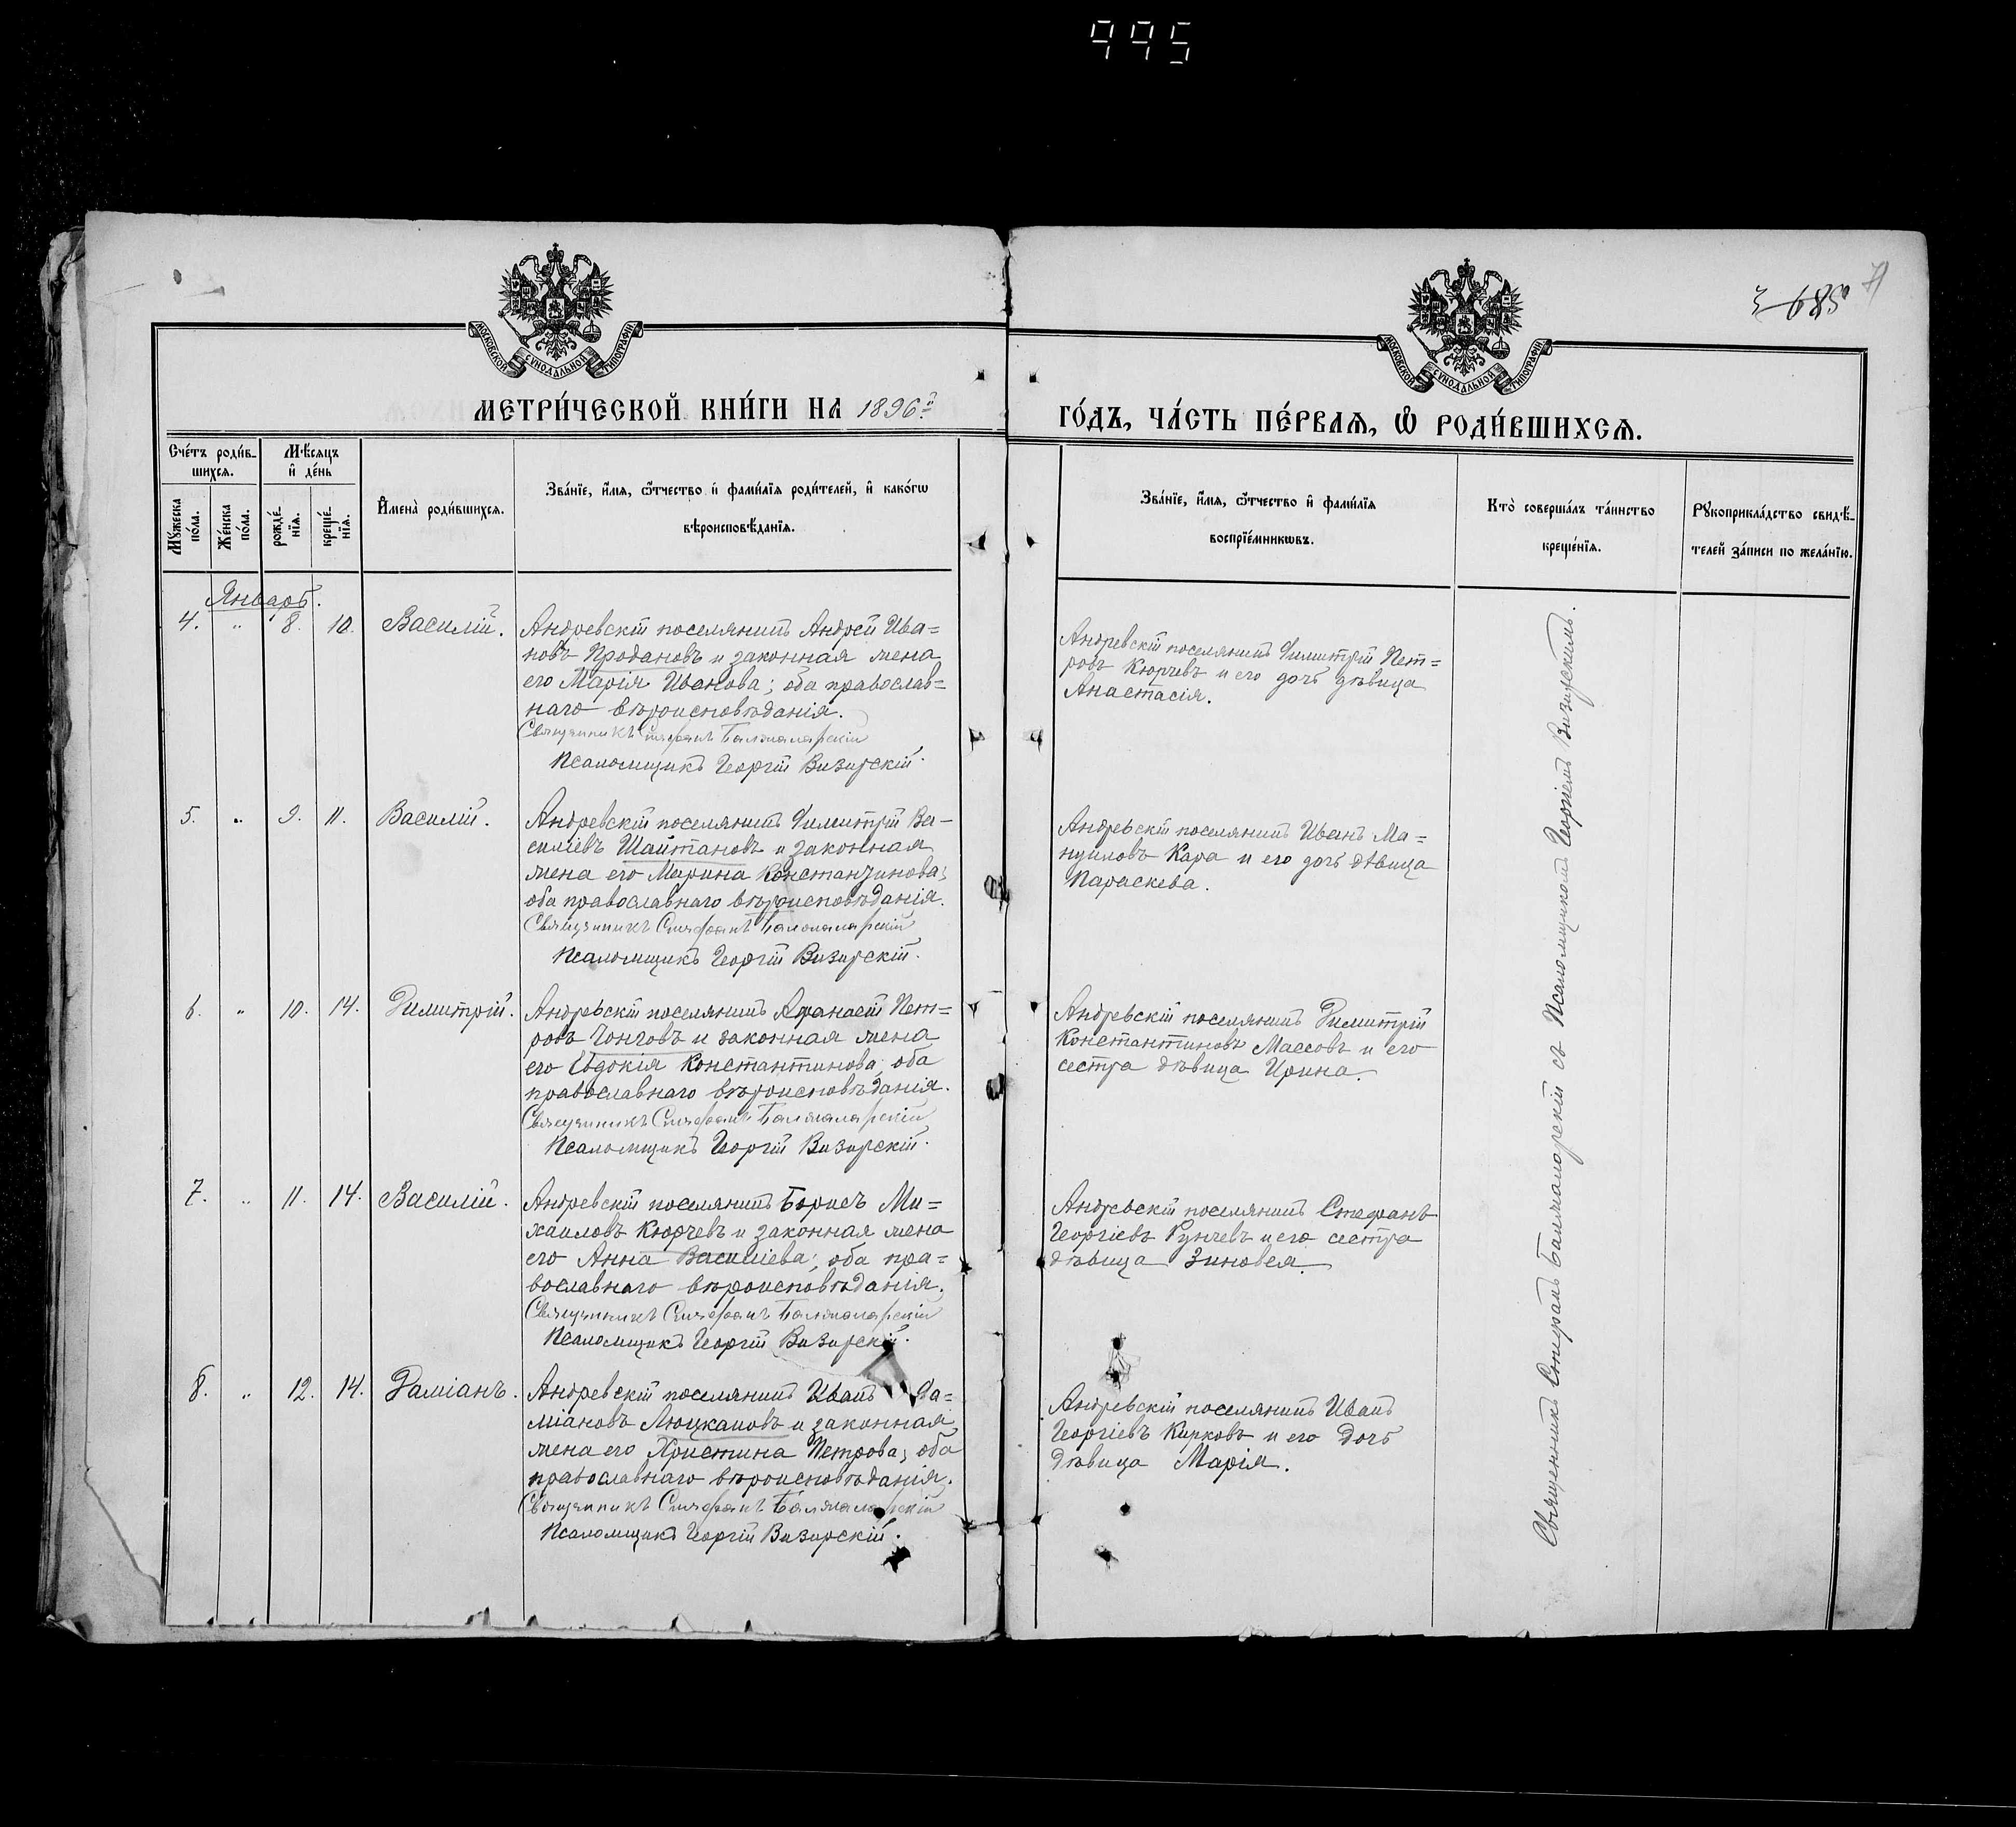 995
3 685
71
МОСКОВСКОЙ СѴНОДАЛЬНОЙ ТИПОГРАФІИ
МОСКОВСКОЙ СѴНОДАЛЬНОЙ ТИПОГРАФІИ
МЕТРИ́ЧЕСКОЙ КНИ́ГИ НА 1896й
ГО́ДЪ, ЧА́СТЬ ПЕ́РВАѦ, Ѡ҆ РОДИ́ВШИХСѦ.
Сче́тъ роди́в-
шихся.
Мѣ́сяцъ
и҆ де́нь
Мꙋ́жеска
по́ла.
Же́нска
по́ла.
рожде́-
нїѧ.
креще́-
нїѧ.
И҆мена̀ роди́вшихся.
Зва́нїе, и҆́мѧ, ѻ҆́тчество и҆ фами́лїѧ роди́телей, и҆ како́гѡ
вѣроисповѣ́данїѧ.
Зва́нїе, и҆́мѧ, ѻ҆́тчество и҆ фами́лїѧ
воспрїе́мникѡвъ.
Кто̀ соверша́лъ та́инство
креще́нїѧ.
Рꙋкоприкла́дство свидѣ́-
телей за́писи по жела́нїю.
Январь.
4. " 8. 10. Василій. Андревскій поселянинъ Андрей Ива=
новъ Продановъ и законная жена
его Марія Иванова; оба православ=
наго вѣроисповѣданія.
Священникъ Стефанъ Балжаларскій
Псаломщикъ Георгій Визирскій.
Андревскій поселянинъ Димитрій Пет=
ровъ Кюрчевъ и его дочь дѣвица
Анастасія.
5. " 9. 11. Василій. Андревскій поселянинъ Димитрій Ва-
силіевъ Шайтановъ и законная
жена его Марина Константинова;
оба православнаго вѣроисповѣданія.
Священникъ Стефанъ Балжаларскій
Псаломщикъ Георгій Визирскій.
Андревскій поселянинъ Иванъ Ма-
нуиловъ Кара и его дочь дѣвица
Параскева.
6. " 10. 14. Димитрій. Андревскій поселянинъ Афанасій Пет=
ровъ Чонговъ и законная жена
его Евдокія Константинова; оба
православнаго вѣроисповѣданія.
Священникъ Стефанъ Балжаларскій
Псаломщикъ Георгій Визирскій.
Андревскій поселянинъ Димитрій
Константиновъ Массовъ и его
сестра дѣвица Ирина.
7. " 11. 14. Василій. Андревскій поселянинъ Борисъ Ми=
хаиловъ Кюрчевъ и законная жена
его Анна Василіева; оба пра=
вославнаго вѣроисповѣданія.
Священникъ Стефанъ Балжаларскій
Псаломщикъ Георгій Визирскій.
Андревскій поселянинъ Стефанъ
Георгіевъ Рунчевъ и его сестра
дѣвица Зиновея.
8. " 12. 14. Даміанъ. Андревскій поселянинъ Иванъ Да=
міановъ Люцкановъ и законная
жена его Христина Петрова; оба
православнаго вѣроисповѣданія.
Священникъ Стефанъ Балжаларскій
Псаломщикъ Георгій Визирскій.
Андревскій поселянинъ Иванъ
Георгіевъ Кирковъ и его дочь
дѣвица Марія.
Священникъ Стефанъ Балжаларскій съ Псаломщикомъ Георгіемъ Визирскимъ.